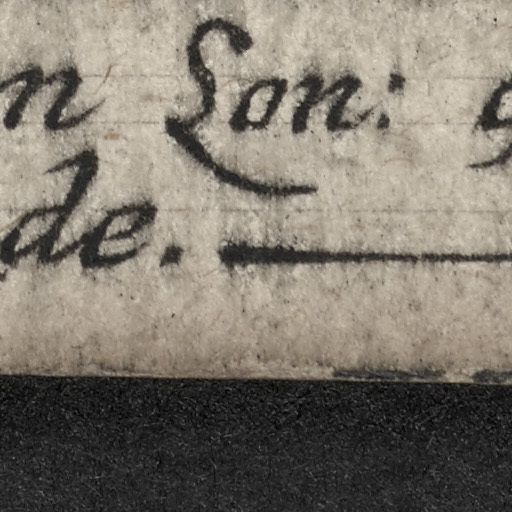 n Lon:
de.